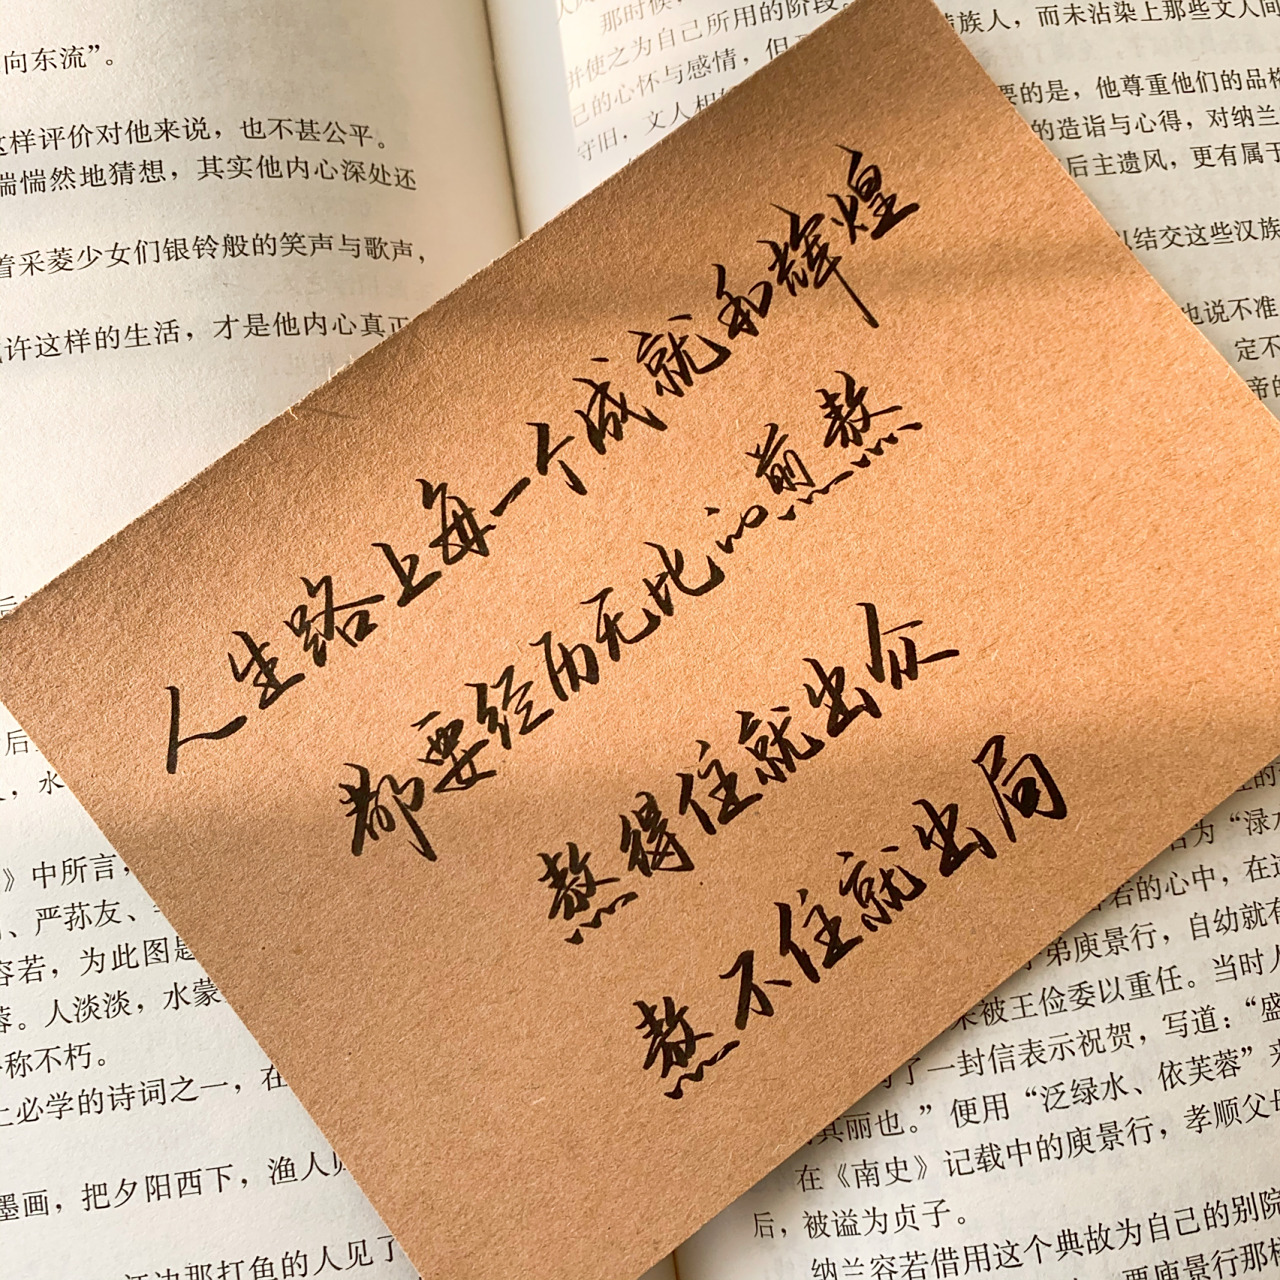 向东流”。
这样评价对他来说，也不甚公平。
惴惴然地猜想，其实他内心深处还
着采菱少女们银铃般的笑声与歌声，
许这样的生活，才是他内心真正
那时候，
并使之为自己所用的阶段。
己的心怀与感情，但
守旧，文人相
族人，而未沾染上那些文人间
要的是，他尊重他们的品格
的造诣与心得，对纳兰
后主遗风，更有属于
以结交这些汉族
也说不准
定不
帝的
人生路上每一个成就和辉煌
都要经历无比的煎熬
熬得住就出众
熬不住就出局
后
，水
》中所言，
、严荪友、
容若，为此图是
蓉。人淡淡，水蒙
称不朽。
上必学的诗词之一，在
墨画，把夕阳西下，渔人归
江边那打鱼的人见了
名为“渌水
容若的心中，在这
子弟庾景行，自幼就有
来被王俭委以重任。当时人
了一封信表示祝贺，写道：“盛
其丽也。”便用“泛绿水、依芙蓉”来
在《南史》记载中的庾景行，孝顺父母
后，被谥为贞子。
纳兰容若借用这个典故为自己的别院
要庾景行那样